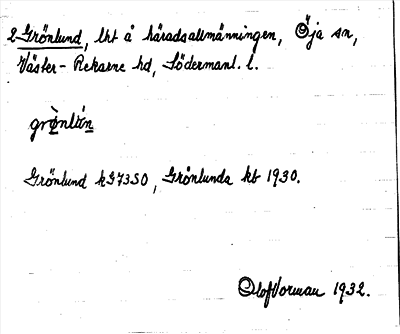 2 Grönlund, lht å häradsallmänningen, Öja sn,
Väster-Rekarne hd, Södermanl. l.
grö̀nlún
Grönlund kG73SO, Grönlunda kb 1930.
Olof Vorman 1932.